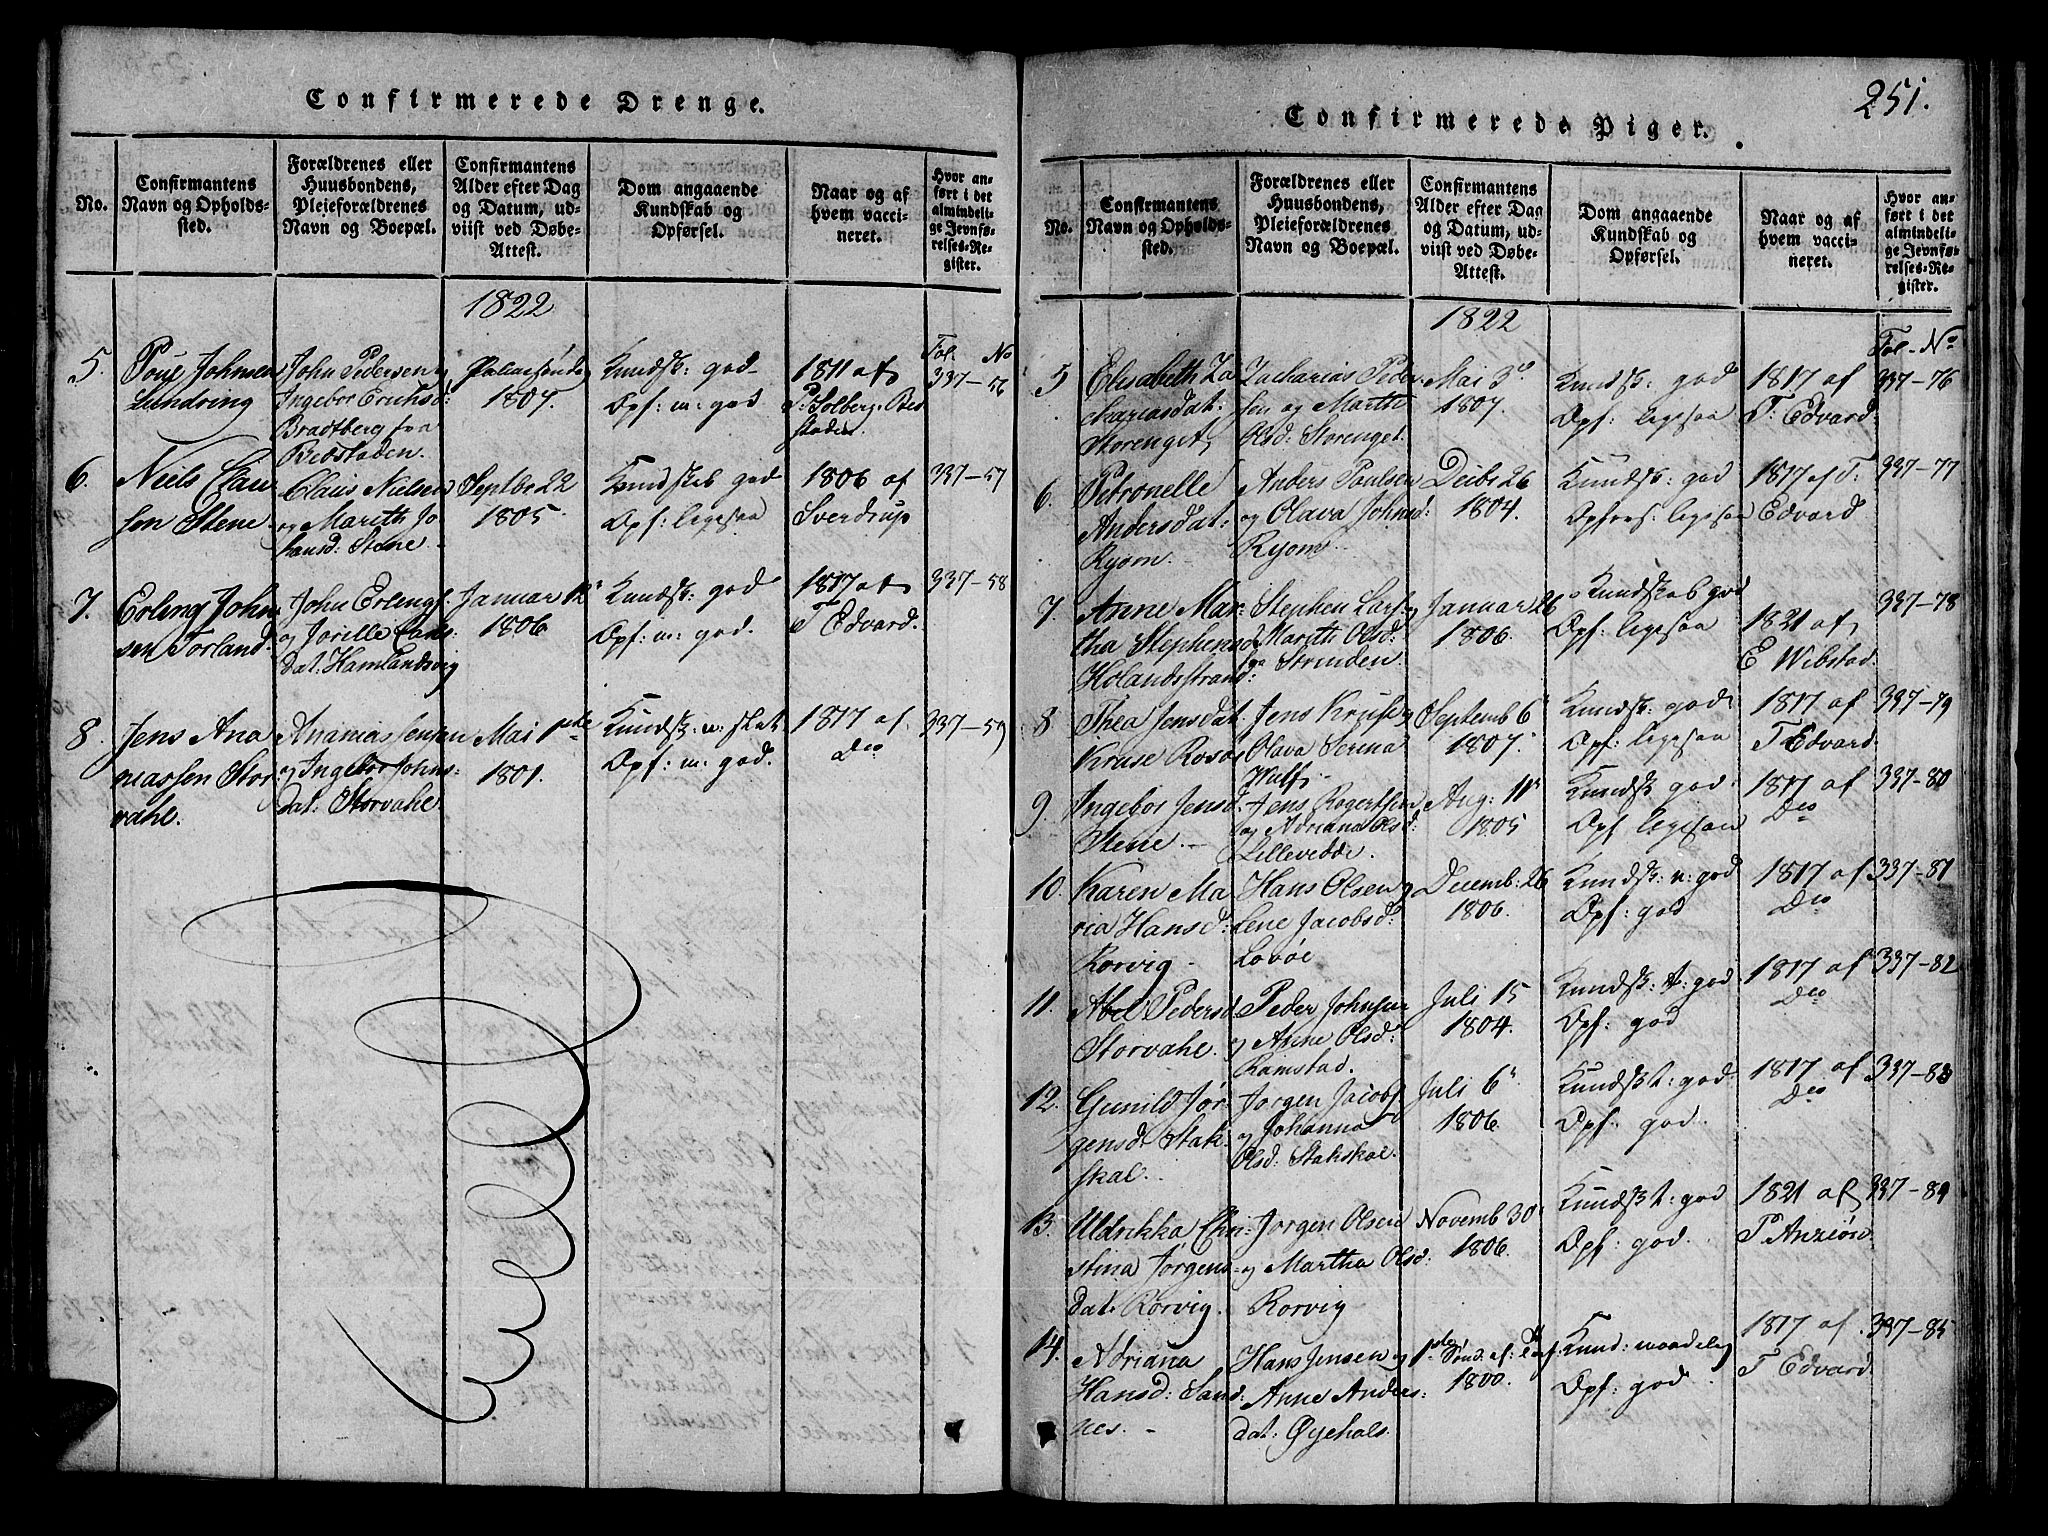 Confirmerede Drenge.
No.
Confirmantens
Navn og Opholds-
sted.
Forældrenes eller
Huusbondens,
Plejeforældrenes
Navn og Boepæl.
Confirmantens
Alder efter Dag
og Datum, ud-
viist ved Døbe-
Attest.
Dom angaaende
Kundskab og
Opførsel.
Naar og af
hvem vacci-
neret.
Hvor an-
ført i det
almindeli-
ge Jevnfø-
relses-Re-
gister.
1822
Fol. No
5.
Johnsen
Lundring
John Pedersen
Ingebor Erichsd:
Bradtberg fra
Bedstaden.
1807.
Kundsk: god
Opf: m: god
1811 af
P: Solberg. Bed
staden.
337-56
6.
Niels Clau
sen Stene.
Claus Nielsen
og Marith Jo
hansd: Stene.
Septbr 22
1805.
Kundskab god
Opf: ligesaa
1806 af
Sverdrup
337-57
7.
Erling John
sen Torland.
John Erlings.
og Jorille Lars:
dat: Hamlandsvig
Januar 12
1806
Kundsk: god
Opf: m: god.
1817 af
T Edvard.
337-58
8.
Jens Ana
niassen Stor
vahl.
Ananias Jensen
og Ingebor Johns:
dat: Storvahl
Mai 1ste
1801.
Kundsk: n: slet
Opf: m: god.
1817 af.
Do
337-59
251.
Confirmerede Piger.
No.
Confirmantens
Navn og Opholds-
sted.
Forældrenes eller
Huusbondens,
Plejeforældrenes
Navn og Boepæl.
Confirmantens
Alder efter Dag
og Datum, ud-
viist ved Døbe-
Attest.
Dom angaaende
Kundskab og
Opførsel.
Naar og af
hvem vacci-
neret.
Hvor an-
ført i det
almindeli-
ge Jevnfø-
relses-Re-
gister.
1822
Fol - No
5
Elisabeth Za
chariasdat.
Storenget,
Zacharias Peder
sen og Marth
Olsd: Storenget.
Mai 3d
1807.
Kundsk: god
Opf: ligesaa
1817 af
T: Edvard.
337-76
6.
Petronelle
Andersdat:
Ryom.
Anders Paulsen
og Olava Johnsd:
Ryom
Decbr 26
1804.
Kundsk: god
Opførs: ligesaa
1817 af T:
Edvard
337-77
7.
Anne Mar:
tha Stephensd
Holandsstrand:
Stephen Lars.
Marith Olsd:
fra Strinden.
Januar 26
1806.
Kundskab god
Opf: ligesaa
1821 af
E Wibstad.
337-78
8
Thea Jensdat.
Kruse Rosøe
Jens Kruse
Olava Serena
Wulf
Septemb 6
1807.
Kundsk: god
Opf: ligesaa
1817 af
T Edvard.
337-79
9.
Ingebor Jensd.
Stene.
Jens Rogertsen
og Adriana Olsd:
Lillevedde.
Aug: 11
1805
Kundsk god
Opf ligesaa
1817 af
Do
337-80
10.
Karen Ma
ria Hansd:
Rorvig
Hans Olsen
Lene Jacobsd:
Lovöe
Decemb: 26
1806.
Kundsk: n: god
Opf: god
1817 af
Do
337-81
11.
Abel Pedersd
Storvahl.
Peder Johnsen
og Anne Olsd:
Ramstad.
Juli 15
1804.
Kundsk: t: god
Opf: god
1817 af
Do
337-82
12.
Gunild Jør-
gensd: Stak
skal.
Jorgen Jacobs
og Johanna
Olsd: Stakskal.
Juli 6
1806.
Kundsk t: god
Opf: god.
1817 af
Do
337-83
13.
Uldrikka Chri
stina Jørgens
dat. Rörvig.
Jorgen Olsen
og Martha Olsd:
Rorvig
Novemb 30
1806.
Kundsk t: god
Opf: god.
1821 af
P Anzion
337-84
14.
Adriana
Hansd: Sand
nes.
Hans Jensen og
Anne Anders:
dat: Øyehals.
1800.
Kund: maadelig
Opf: god
1817 af.
T Edvard
337-85